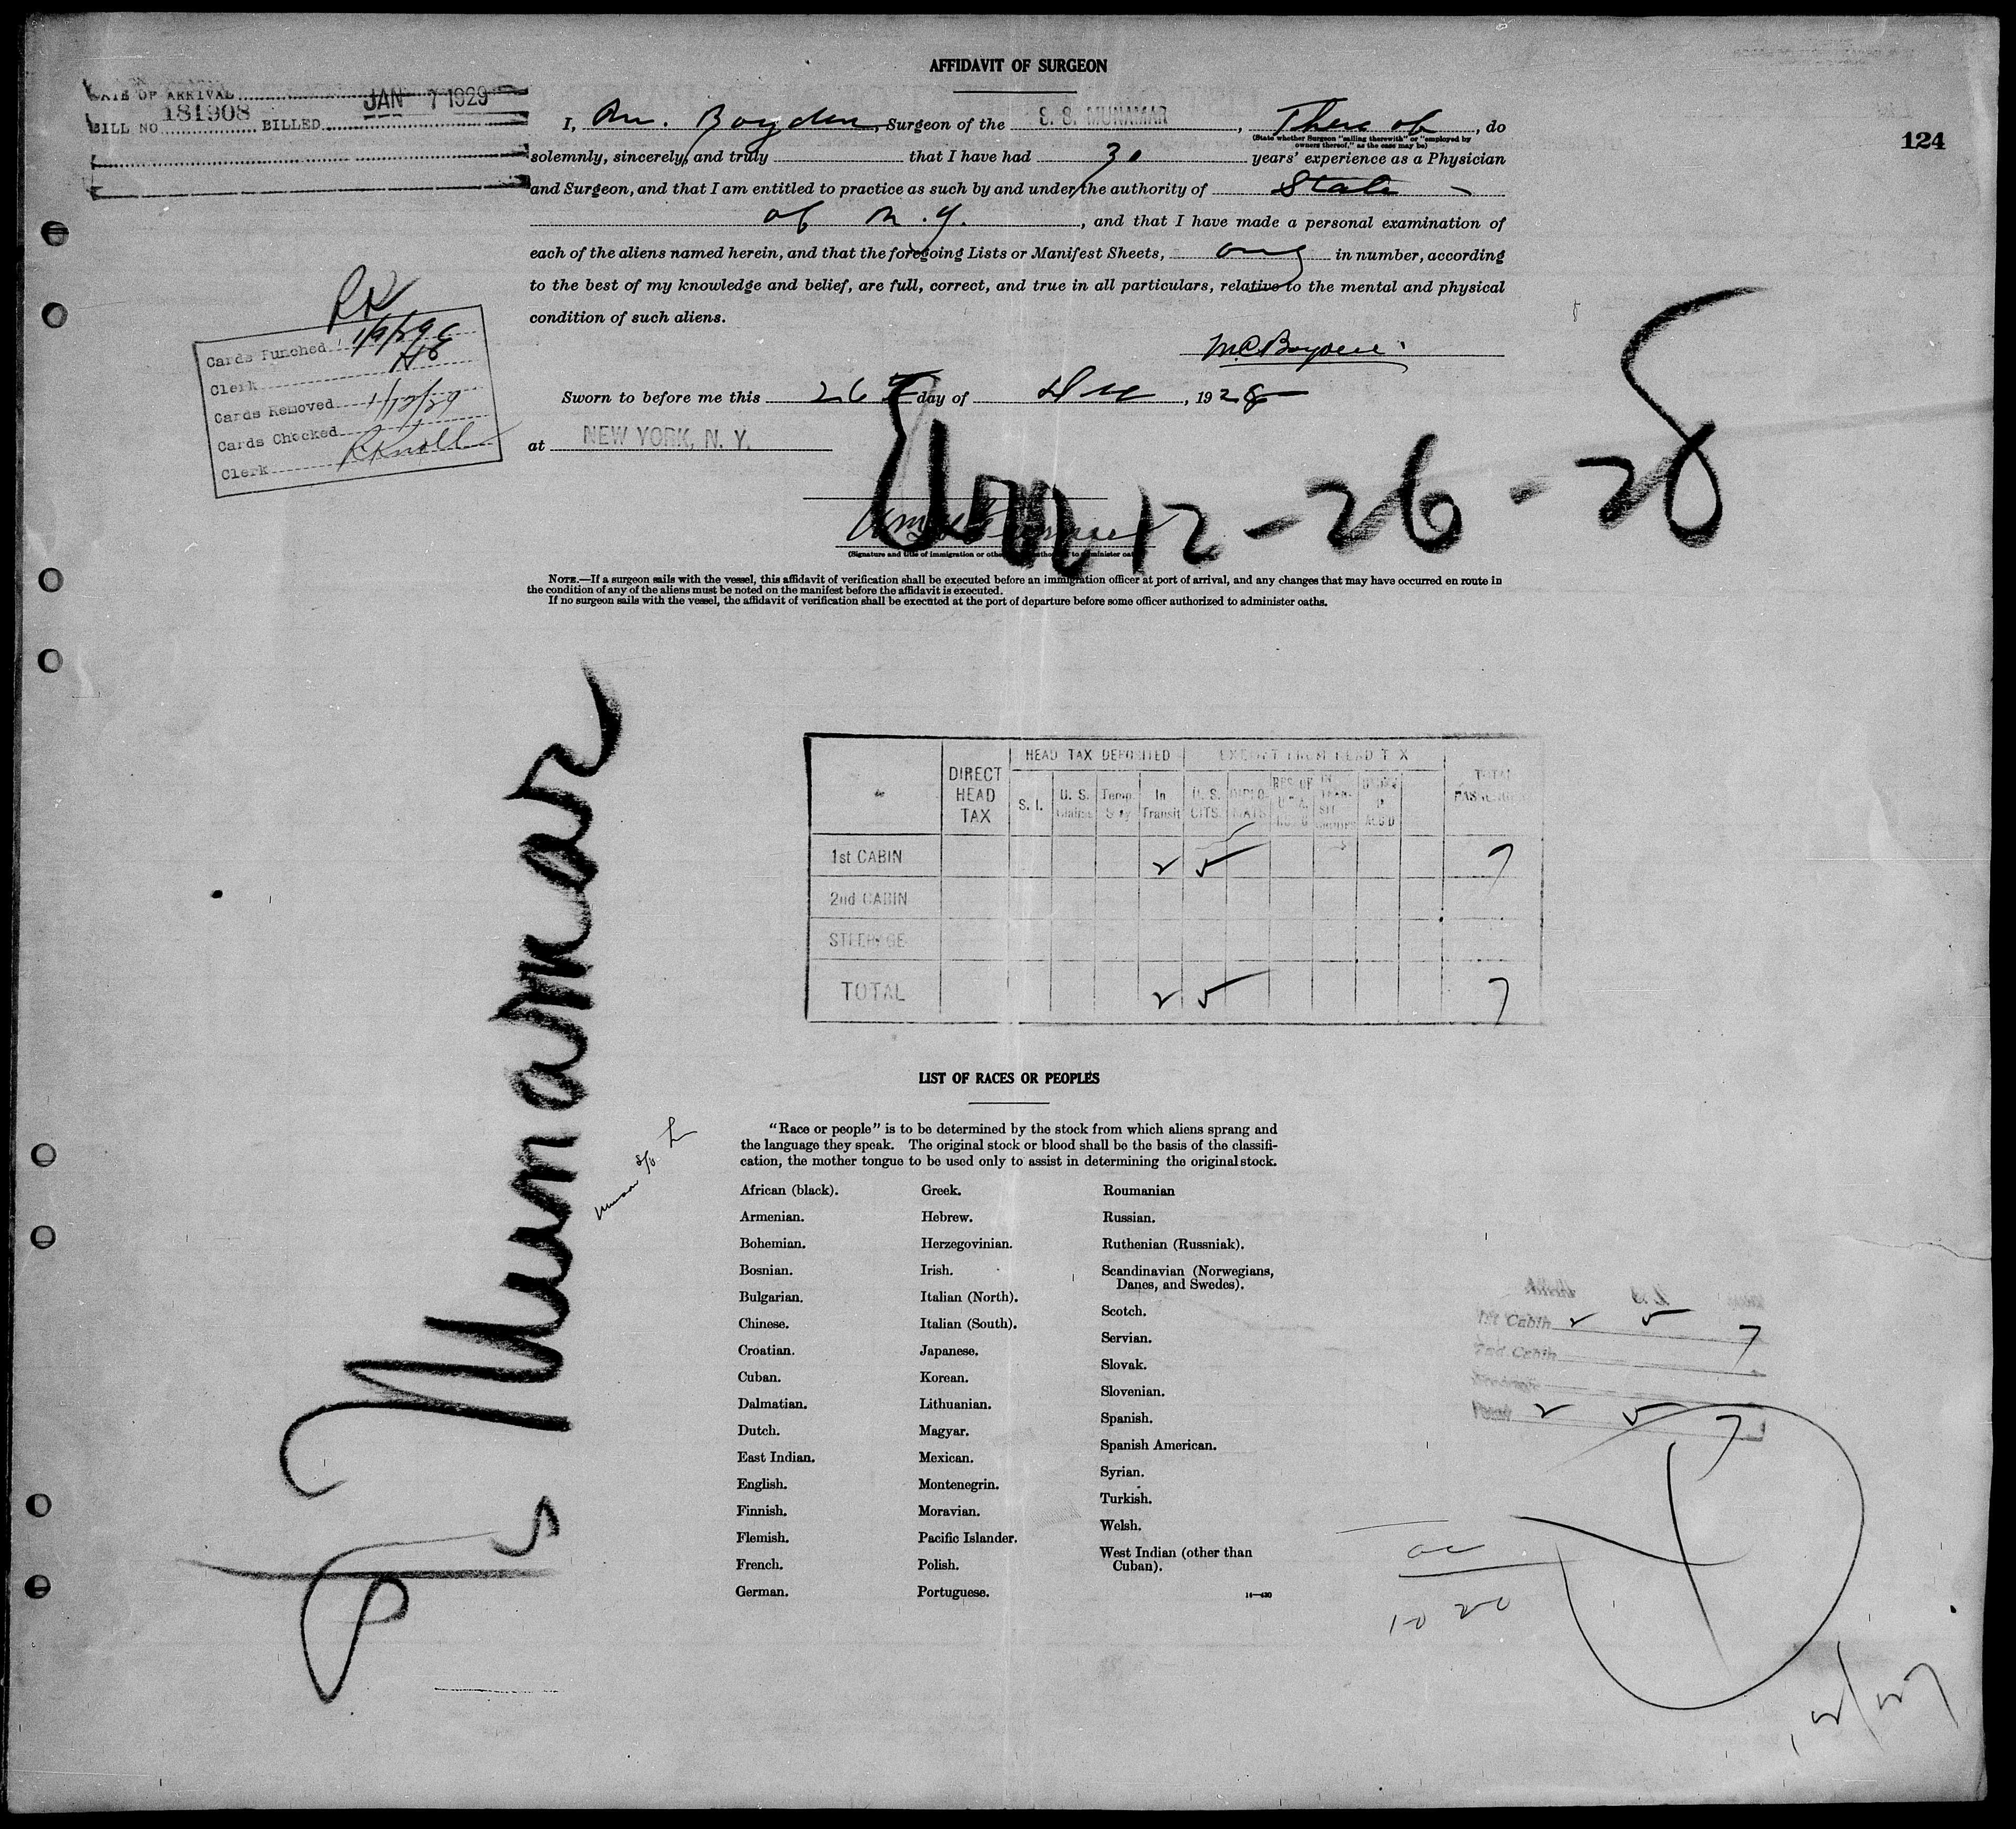 AFFIDAVIT OF SURGEON
124
DATE OF ARRIVAL
BILL NO 181908 BILLED JAN 7 1929
I, Boyden, Surgeon of the S. S. MUNAMAR, There of, do
(State whether Surgeon "sailing therewith" or "employed by
owners thereof," as the case may be)
solemnly, sincerely, and truly that I have had 30 years' experience as a Physician
and Surgeon, and that I am entitled to practice as such by and under the authority of State
of N.Y., and that I have made a personal examination of
each of the aliens named herein, and that the foregoing Lists or Manifest Sheets, one in number, according
to the best of my knowledge and belief, are full, correct, and true in all particulars, relative to the mental and physical
condition of such aliens.
M.C. Boyden
Sworn to before me this 26th day of Dec, 1928
at NEW YORK, N. Y.
RK
Cards Punched 1/9/29
Clerk
Cards Removed 1/12/29
Cards Checked
Clerk RKnoll
12-26-28
(Signature and title of immigration or other
NOTE.—If a surgeon sails with the vessel, this affidavit of verification shall be executed before an immigration officer at port of arrival, and any changes that may have occurred en route in
the condition of any of the aliens must be noted on the manifest before the affidavit is executed.
If no surgeon sails with the vessel, the affidavit of verification shall be executed at the port of departure before some officer authorized to administer oaths.
Munamar
DIRECT HEAD TAX
HEAD TAX DEPOSITED
EXEMPT FROM HEAD TAX
TOTAL PASSENGERS
S. I. U. S. Temp. In Transit U. S. CITS.
1st CABIN 2 5 7
2nd CABIN
STEERAGE
TOTAL 2 5 7
LIST OF RACES OR PEOPLES
"Race or people" is to be determined by the stock from which aliens sprang and
the language they speak. The original stock or blood shall be the basis of the classifi-
cation, the mother tongue to be used only to assist in determining the original stock.
African (black).
Armenian.
Bohemian.
Bosnian.
Bulgarian.
Chinese.
Croatian.
Cuban.
Dalmatian.
Dutch.
East Indian.
English.
Finnish.
Flemish.
French.
German.
Greek.
Hebrew.
Herzegovinian.
Irish.
Italian (North).
Italian (South).
Japanese.
Korean.
Lithuanian.
Magyar.
Mexican.
Montenegrin.
Moravian.
Pacific Islander.
Polish.
Portuguese.
Roumanian
Russian.
Ruthenian (Russniak).
Scandinavian (Norwegians,
Danes, and Swedes).
Scotch.
Servian.
Slovak.
Slovenian.
Spanish.
Spanish American.
Syrian.
Turkish.
Welsh.
West Indian (other than
Cuban).
14—430
1st Cabin 2 5 7
2nd Cabin
Total 2 5 7